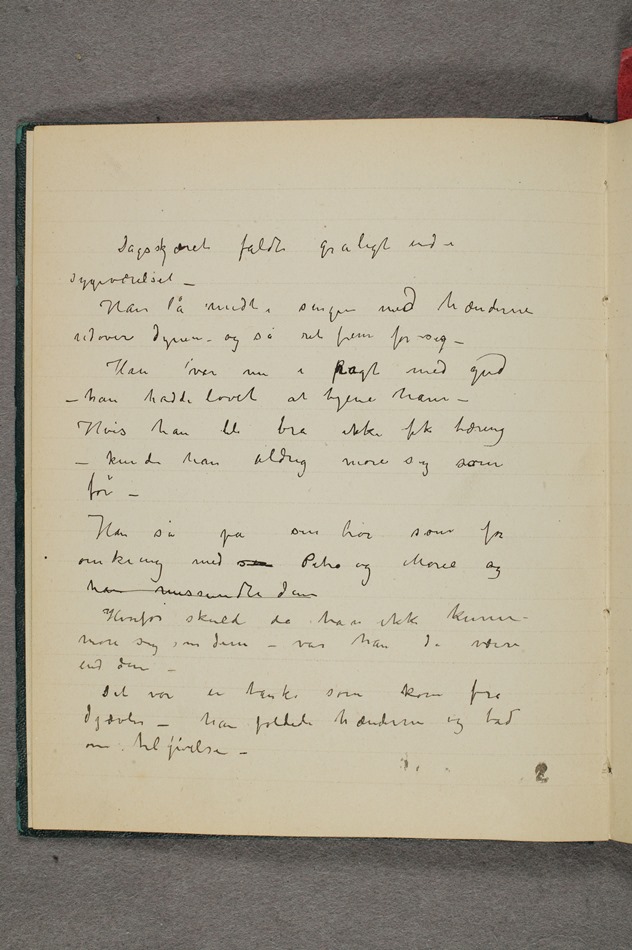 Dagsskjæret faldt gråligt ind i
sygeværelset –
Han lå midt i sengen med hænderne
udover dynen – og så ret frem for sig –
Han var nu i pagt med gud
– han hadde lovet at tjene ham –
Hvis han ble bra ikke fik tæring
– kunde han aldrig more sig som
før –
Han så på sin bror som for
omkring med Petra og Marie og
han missundte dem
Hvorfor skulde da han ikke kunne
more sig som dem – var han da værre
end dem –
Det var en tanke som kom fra
djævlen – han foldede hænderne og bad
om tilgivelse –
2